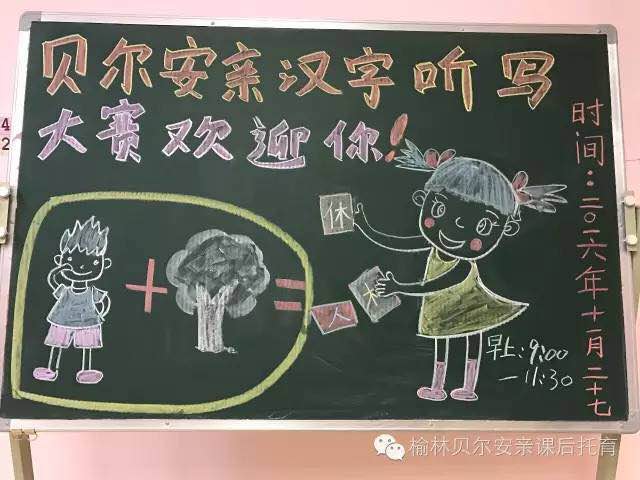 贝尔安亲汉字听写
大赛欢迎你!
时间:二〇一六年十一月二十七
早上:9:00
—11:30
休
木
人
+
=
4
2
榆林贝尔安亲课后托育